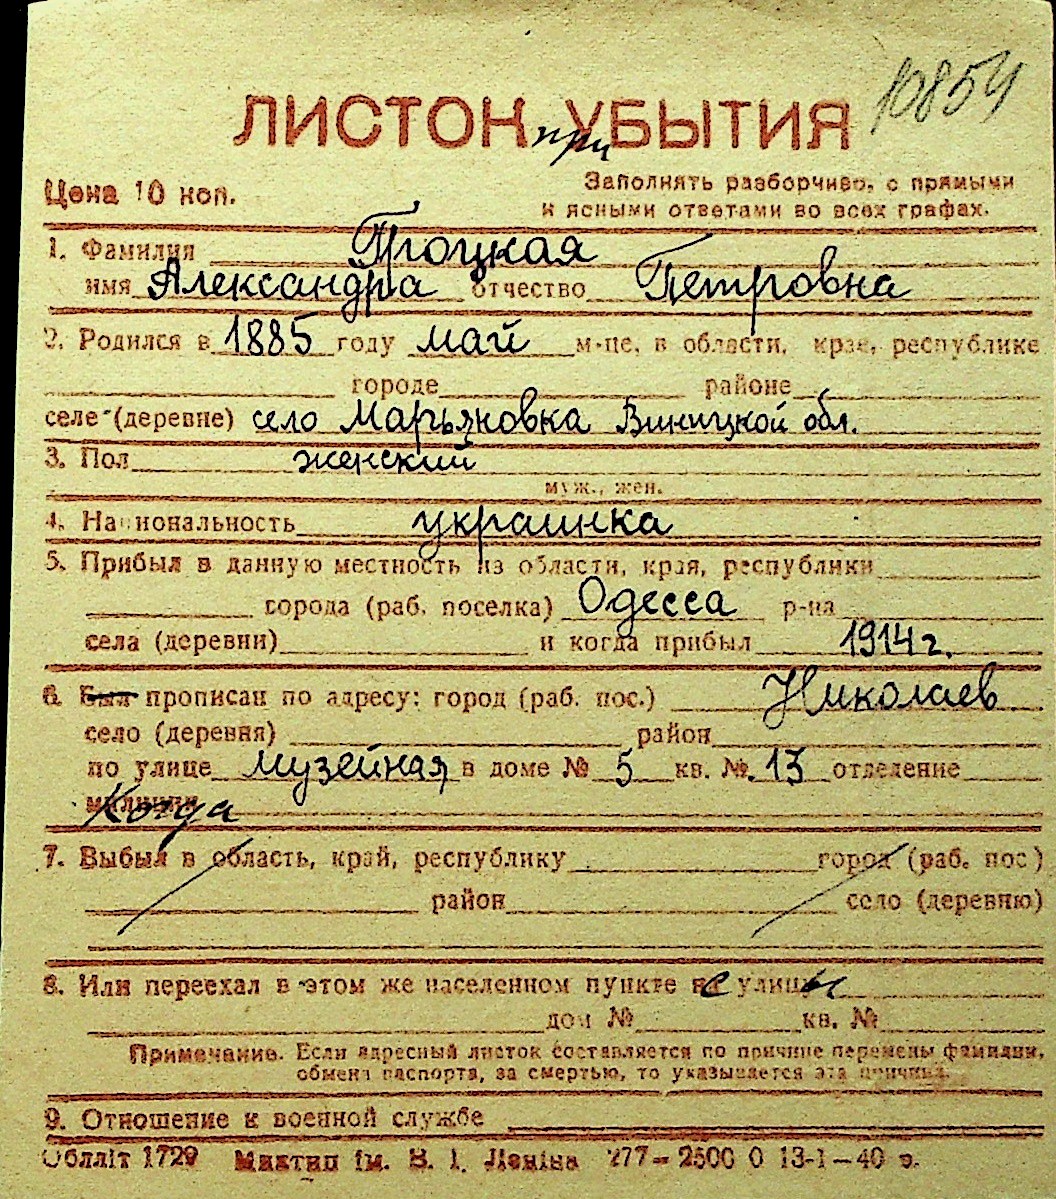 10854
ЛИСТОК при УБЫТИЯ
Цена 10 коп.
Заполнять разборчиво, с прямыми
и ясными ответами во всех графах.
1. Фамилия Троцкая
имя Александра отчество Петровна
2. Родился в 1885 году май м-це, в области, крае, республике
городе районе
селе (деревне) село Марьяновка Виницкой обл.
3. Пол женский
муж., жен.
4. Национальность украинка
5. Прибыл в данную местность из области, края, республики
города (раб. поселка) Одесса р-на
села (деревни) и когда прибыл 1914 г.
6. Был прописан по адресу: город (раб. пос.) Николаев
село (деревня) район
по улице музейная в доме № 5 кв. № 13 отделение
милиции Когда
7. Выбыл в область, край, республику город (раб. пос)
район село (деревню)
8. Или переехал в этом же населенном пункте с улицы
дом № кв. №
Примечание. Если адресный листок составляется по причине перемены фамилии,
обмена паспорта, за смертью, то указывается эта причина.
9. Отношение к военной службе
Обллiт 1729 Миктип iм. В. I. Ленiна 277—2500 0 13-1—40 р.